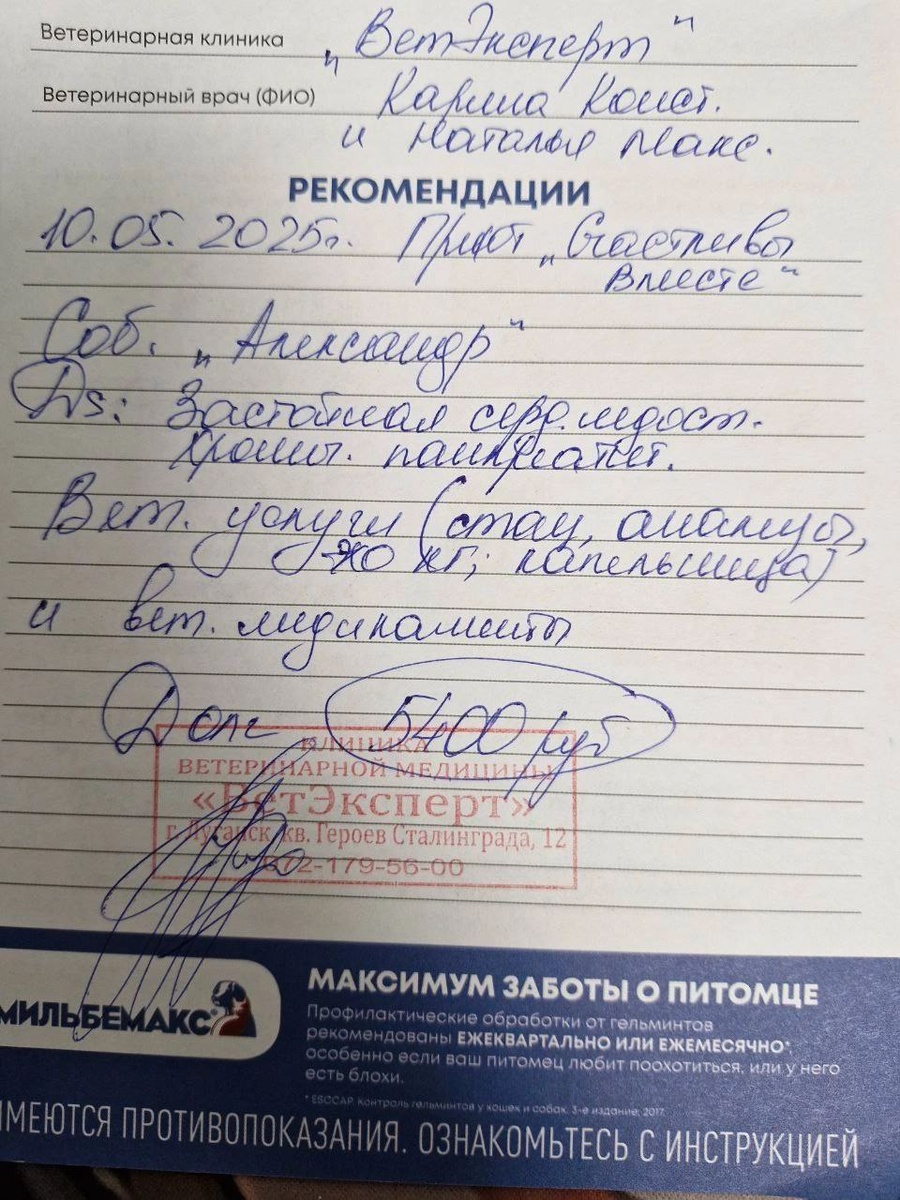 Ветеринарная клиника „ВетЭксперт"
Ветеринарный врач (ФИО) Карина Конст.
и Наталья Макс.
РЕКОМЕНДАЦИИ
10.05.2025г. Приют „Счастливы
Вместе"
Соб. „Александр"
Ds: Застойная серд. недост.
Хронич. панкреатит.
Вет. услуги (стац, анализы,
ЭХО КГ; капельница)
и вет. медикаменты
Долг 5400 руб
КЛИНИКА
ВЕТЕРИНАРНОЙ МЕДИЦИНЫ
«ВетЭксперт»
г. Луганск, кв. Героев Сталинграда, 12
072-179-56-00
МИЛЬБЕМАКС®
МАКСИМУМ ЗАБОТЫ О ПИТОМЦЕ
Профилактические обработки от гельминтов
рекомендованы ЕЖЕКВАРТАЛЬНО ИЛИ ЕЖЕМЕСЯЧНО*,
особенно если ваш питомец любит поохотиться, или у него
есть блохи.
* ESCCAP. Контроль гельминтов у кошек и собак. 3-е издание, 2017.
ИМЕЮТСЯ ПРОТИВОПОКАЗАНИЯ. ОЗНАКОМЬТЕСЬ С ИНСТРУКЦИЕЙ